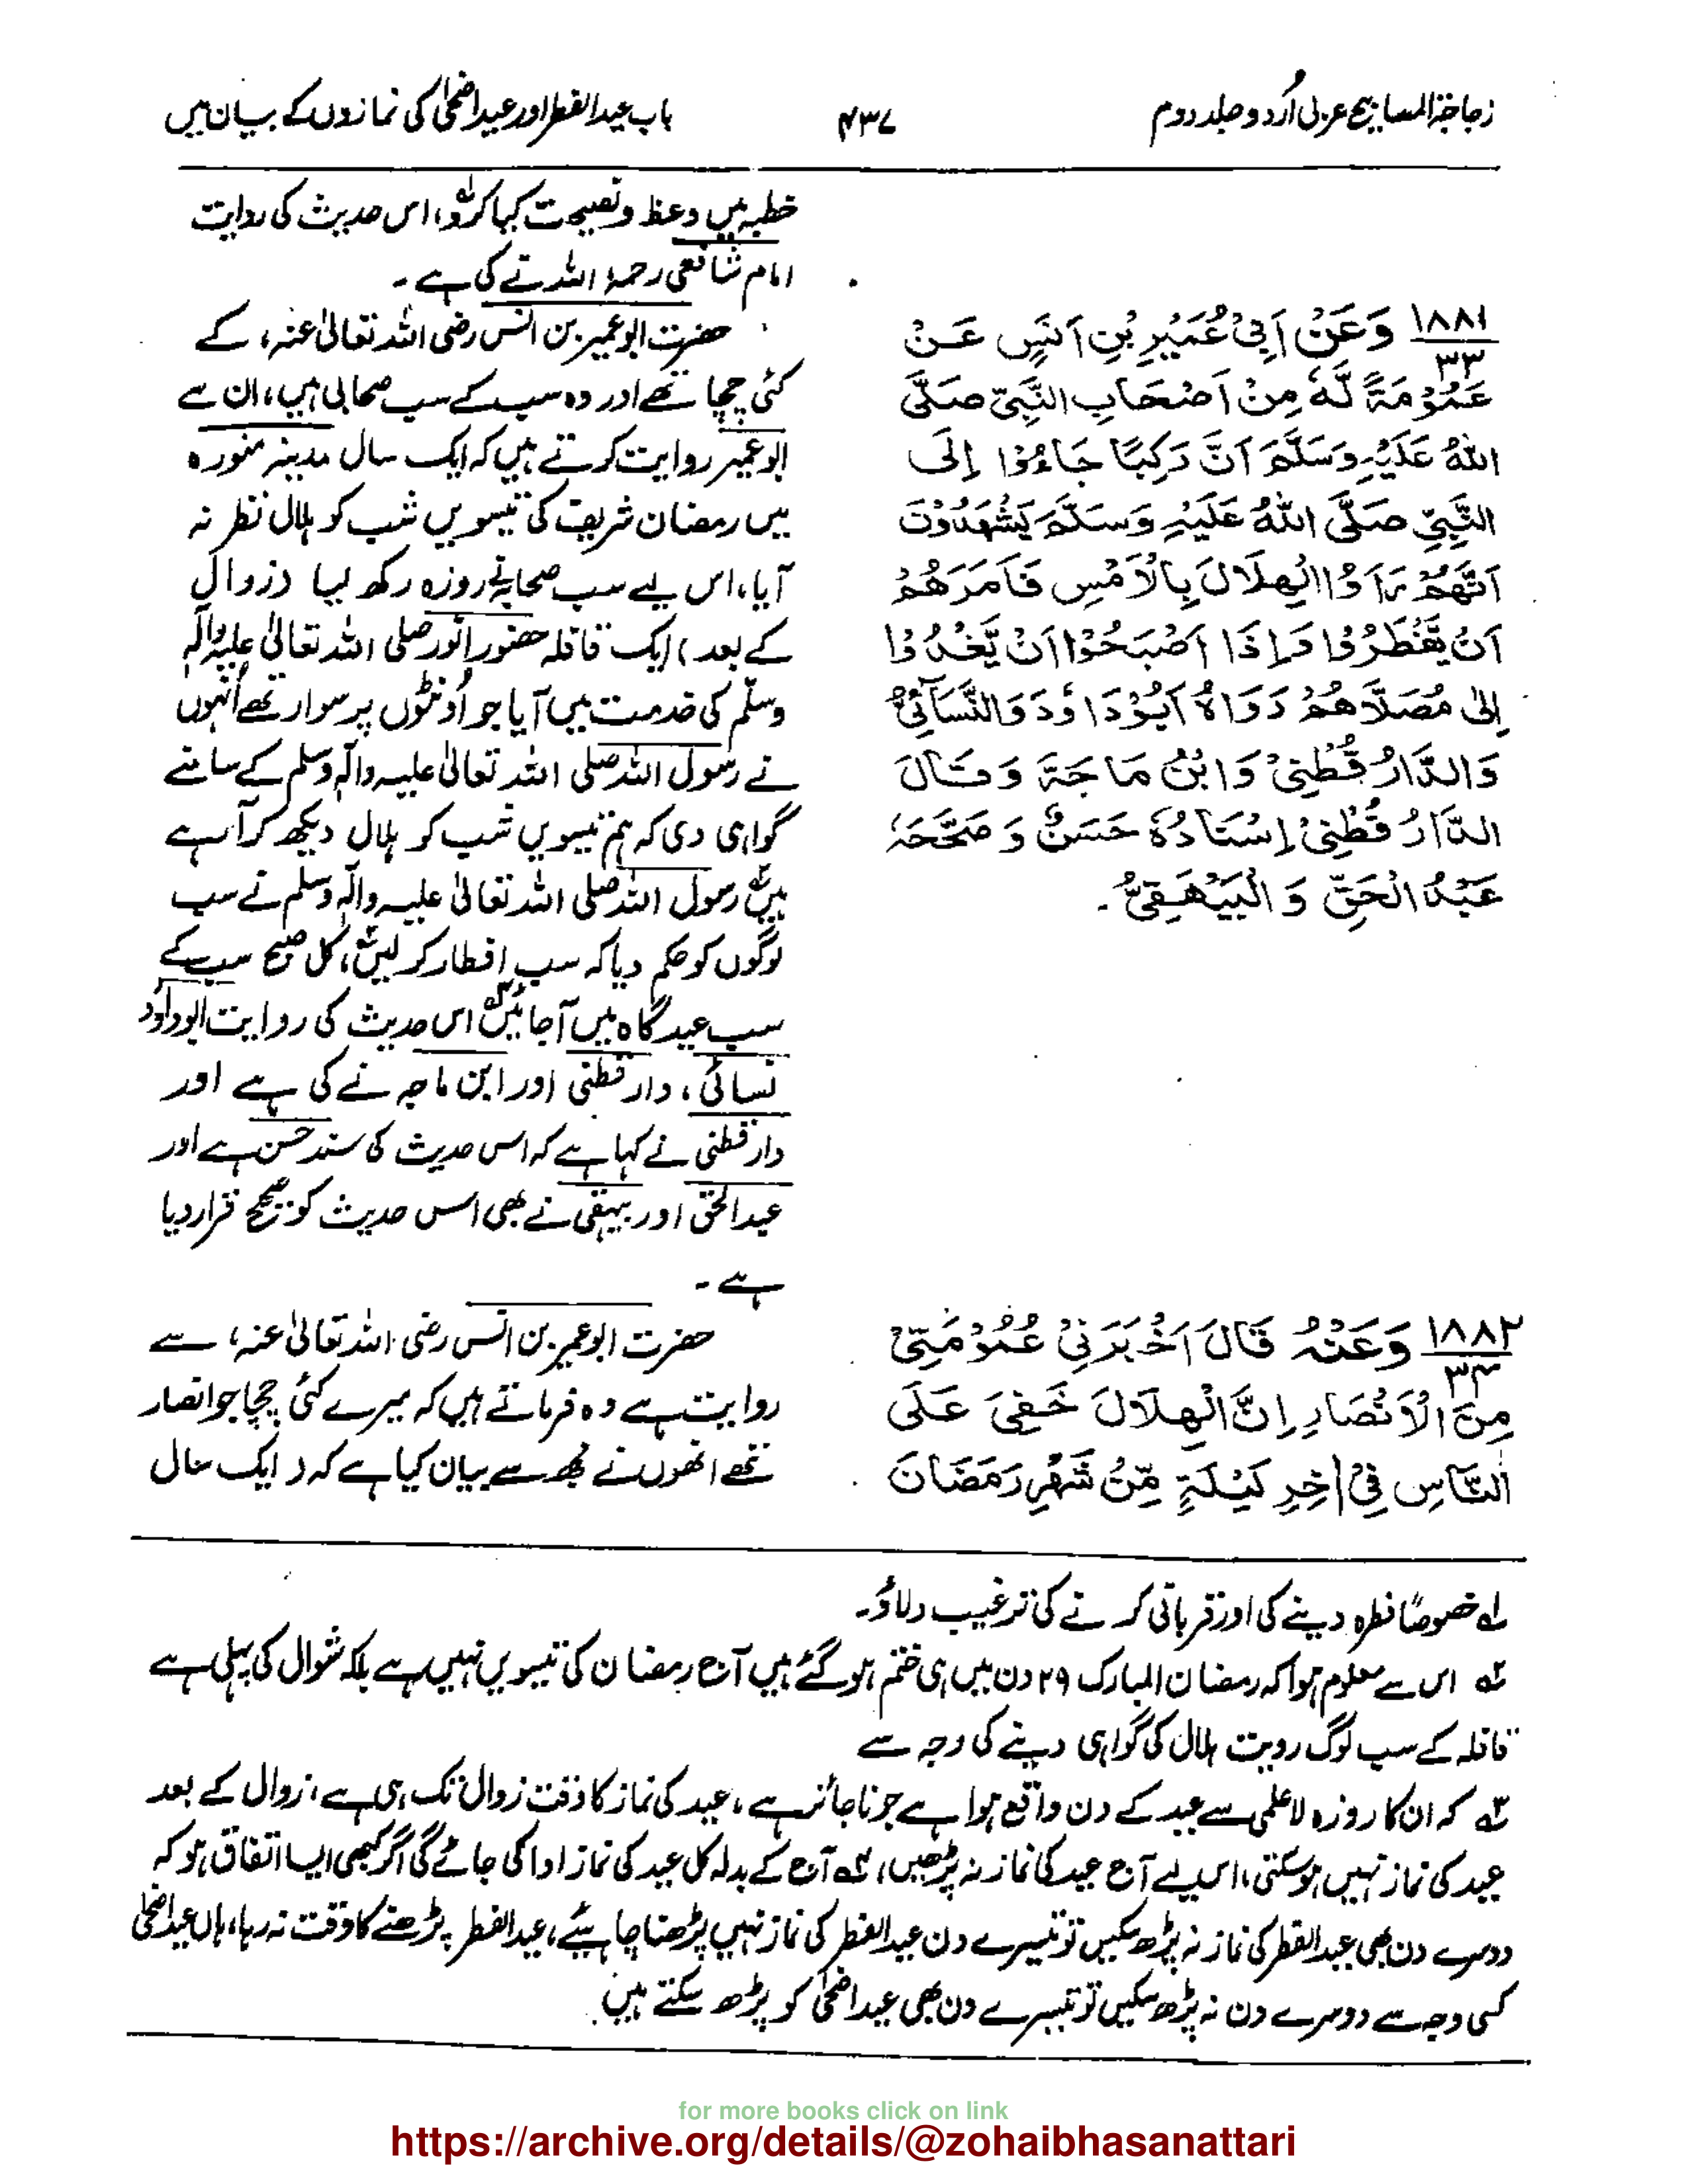 زجاجۃ المصابیح عربی اُردو جلد دوم
۴۳۷
باب عید الفطر اور عید اضحیٰ کی نمازوں کے بیان میں
خطبہ میں وعظ و نصیحت کیا کرو، اس حدیث کی روایت
امام شافعی رحمۃ اللہ نے کی ہے ۔
۱۸۸۱/۳۳ وَعَنْ اَبِیْ عُمَیْرِ بْنِ اَنَسٍ عَنْ
عَمُوْمَۃً لَّہٗ مِنْ اَصْحَابِ النَّبِیِّ صَلَّی
اللہُ عَلَیْہِ وَسَلَّمَ اَنَّ رَکِبًا جَاءُوْا اِلَی
النَّبِیِّ صَلَّی اللہُ عَلَیْہِ وَسَلَّمَ یَشْھَدُوْنَ
اَنَّھُمْ رَاَوُا الْھِلَالَ بِالْاَمْسِ فَاَمَرَھُمْ
اَنْ یَّفْطَرُوْا وَاِذَا اَصْبَحُوْا اَنْ یَّغْدُوْا
اِلٰی مُصَلَّاھُمْ رَوَاہُ اَبُوْدَاؤُدَ وَالنَّسَآئِیُّ
وَالدَّارُ قُطْنِیْ وَابْنُ مَاجَۃَ وَقَالَ
الدَّارُ قُطْنِیْ اِسْنَادُہٗ حَسَنٌ وَصَحَّحَہٗ
عَبْدُ الْحَقِّ وَ الْبَیْھَقِیُّ ۔
حضرت ابو عمیر بن انس رضی اللہ تعالیٰ عنہ، کے
کئی چچا تھے اور وہ سب کے سب صحابی ہیں، ان سے
ابو عمیر روایت کرتے ہیں کہ ایک سال مدینہ منورہ
میں رمضان شریف کی تیسویں شب کو ہلال نظر نہ
آیا، اس لیے سب صحابہ نے روزہ رکھ لیا (زوال
کے بعد) ایک قافلہ حضور انور صلی اللہ تعالیٰ علیہ وآلہ
وسلّم کی خدمت میں آیا جو اونٹوں پر سوار تھے اُنہوں
نے رسول اللہ صلی اللہ تعالیٰ علیہ وآلہٖ وسلم کے سامنے
گواہی دی کہ ہم تیسویں شب کو ہلال دیکھ کر آ رہے
ہیں ؂۲ رسول اللہ صلی اللہ تعالیٰ علیہ وآلہٖ وسلم نے سب
لوگوں کو حکم دیا کہ سب افطار کر لیں ؂۳، کل صبح سب کے
سب عید گاہ میں آجائیں ؂۴ اس حدیث کی روایت ابو داؤد
نسائی، دارقطنی اور ابن ماجہ نے کی ہے اور
دارقطنی نے کہا ہے کہ اس حدیث کی سند حسن ہے اور
عبدالحق اور بیہقی نے بھی اس حدیث کو صحیح قرار دیا
ہے ۔
۱۸۸۲/۳۴ وَعَنْہُ قَالَ اَخْبَرَنِیْ عُمُوْمَتِیْ
مِنَ الْاَنْصَارِ اِنَّ الْھِلَالَ خَفِیَ عَلَی
النَّاسِ فِیْ اٰخِرِ لَیْلَۃٍ مِّنْ شَھْرِ رَمَضَانَ
حضرت ابو عمیر بن انس رضی اللہ تعالیٰ عنہ، سے
روایت ہے وہ فرماتے ہیں کہ میرے کئی چچا جو انصار
تھے انھوں نے مجھ سے بیان کیا ہے کہ (ایک سال
؂۱ خصوصًا فطرہ دینے کی اور قربانی کرنے کی ترغیب دلاؤ۔
؂۲ اس سے معلوم ہوا کہ رمضان المبارک ۲۹ دن میں ہی ختم ہو گئے ہیں آج رمضان کی تیسویں نہیں ہے بلکہ شوال کی پہلی ہے
قافلہ کے سب لوگ رویت ہلال کی گواہی دینے کی وجہ سے
؂۳ کہ ان کا روزہ لاعلمی سے عید کے دن واقع ہوا ہے جو ناجائز ہے، عید کی نماز کا وقت زوال تک ہی ہے، زوال کے بعد
عید کی نماز نہیں ہو سکتی، اس لیے آج عید کا نماز نہ پڑھیں، ؂۴ آج کے بدلہ کل عید کی نماز ادا کی جائے گی اگر کبھی ایسا اتفاق ہو کہ
دوسرے دن بھی عید الفطر کی نماز نہ پڑھ سکیں تو تیسرے دن عید الفطر کی نماز نہیں پڑھنا چاہیئے، عید الفطر پڑھنے کا وقت نہ رہا، ہاں عید اضحیٰ
کسی وجہ سے دوسرے دن نہ پڑھ سکیں تو تیسرے دن بھی عید اضحیٰ کو پڑھ سکتے ہیں۔
for more books click on link
https://archive.org/details/@zohaibhasanattari